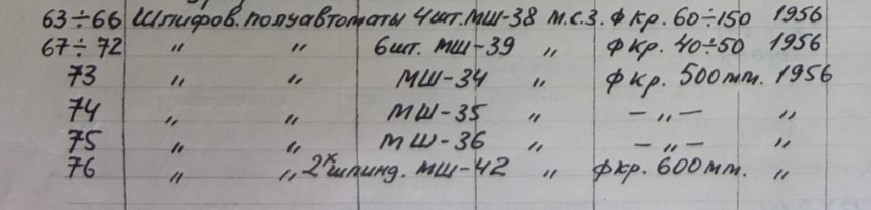 63÷66 Шлифов. полуавтоматы 4шт. МШ-38 м.с.з. ф кр. 60÷150 1956
67÷72 " " 6шт. МШ-39 " ф кр. 40÷50 1956
73 " " МШ-34 " ф кр. 500мм. 1956
74 " " МШ-35 " - " - "
75 " " МШ-36 " - " - "
76 " " 2х шпинд. МШ-42 " ф кр. 600мм. "